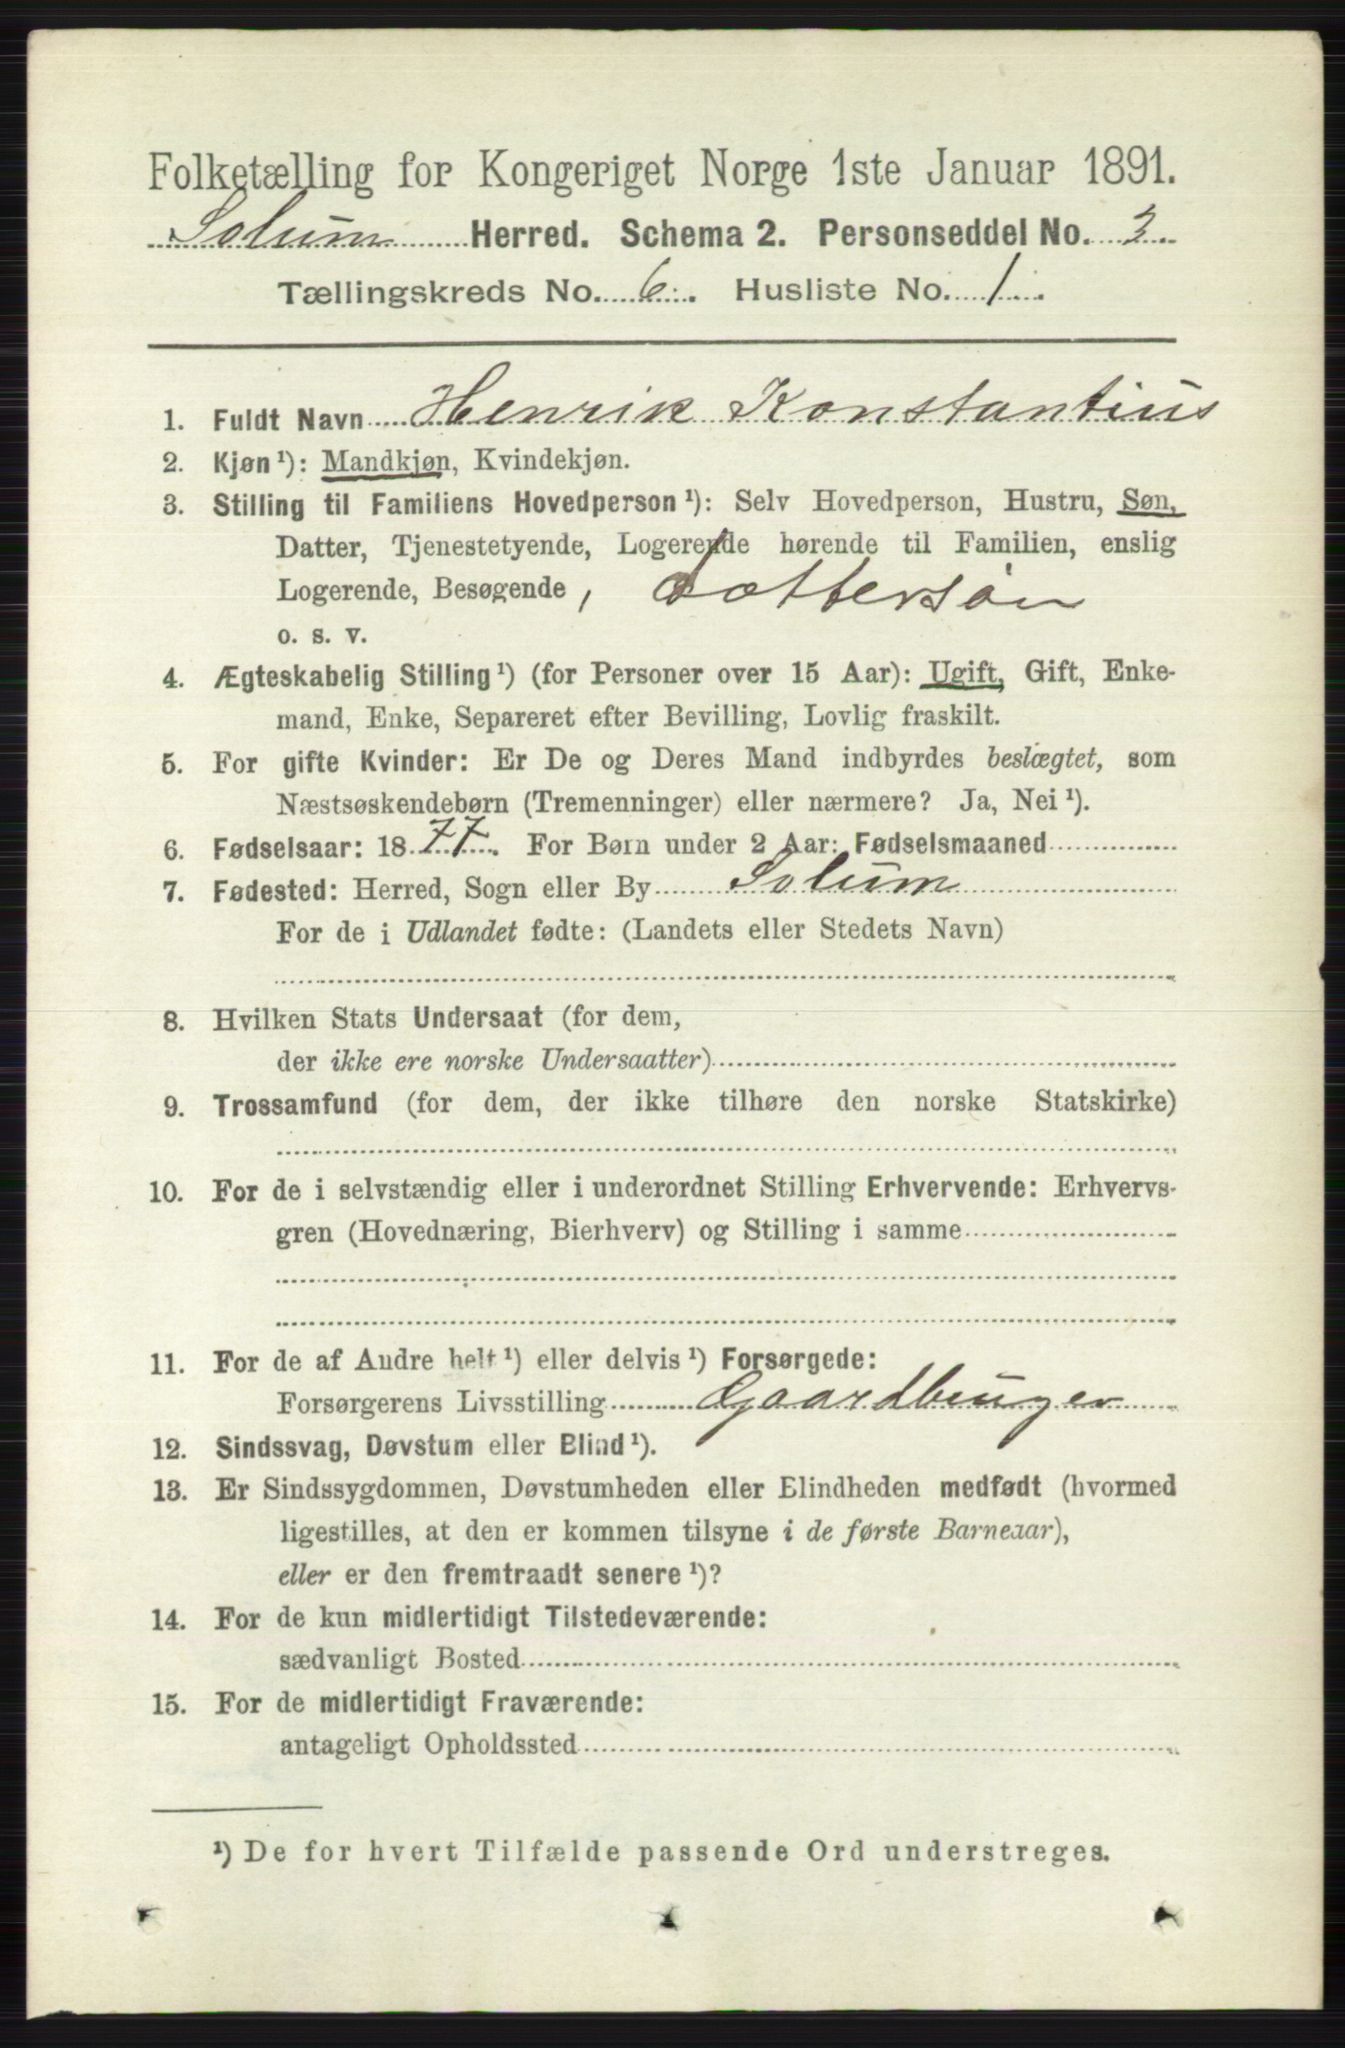 Folketælling for Kongeriget Norge 1ste Januar 1891.
Solum Herred. Schema 2. Personseddel No. 3.
Tællingskreds No. 6. Husliste No. 1.
1. Fuldt Navn Henrik Konstantius
2. Kjøn¹): Mandkjøn, Kvindekjøn.
3. Stilling til Familiens Hovedperson¹): Selv Hovedperson, Hustru, Søn,
Datter, Tjenestetyende, Logerende hørende til Familien, enslig
Logerende, Besøgende, dattersøn
o. s. v.
4. Ægteskabelig Stilling¹) (for Personer over 15 Aar): Ugift, Gift, Enke-
mand, Enke, Separeret efter Bevilling, Lovlig fraskilt.
5. For gifte Kvinder: Er De og Deres Mand indbyrdes beslægtet, som
Næstsøskendebørn (Tremenninger) eller nærmere? Ja, Nei¹).
6. Fødselsaar: 1877. For Børn under 2 Aar: Fødselsmaaned
7. Fødested: Herred, Sogn eller By Solum
For de i Udlandet fødte: (Landets eller Stedets Navn)
8. Hvilken Stats Undersaat (for dem,
der ikke ere norske Undersaatter)
9. Trossamfund (for dem, der ikke tilhøre den norske Statskirke)
10. For de i selvstændig eller i underordnet Stilling Erhvervende: Erhvervs-
gren (Hovednæring, Bierhverv) og Stilling i samme
11. For de af Andre helt¹) eller delvis¹) Forsørgede:
Forsørgerens Livsstilling Gaardbruger
12. Sindssvag, Døvstum eller Blind¹).
13. Er Sindssygdommen, Døvstumheden eller Blindheden medfødt (hvormed
ligestilles, at den er kommen tilsyne i de første Barneaar),
eller er den fremtraadt senere¹)?
14. For de kun midlertidigt Tilstedeværende:
sædvanligt Bosted
15. For de midlertidigt Fraværende:
antageligt Opholdssted
¹) De for hvert Tilfælde passende Ord understreges.